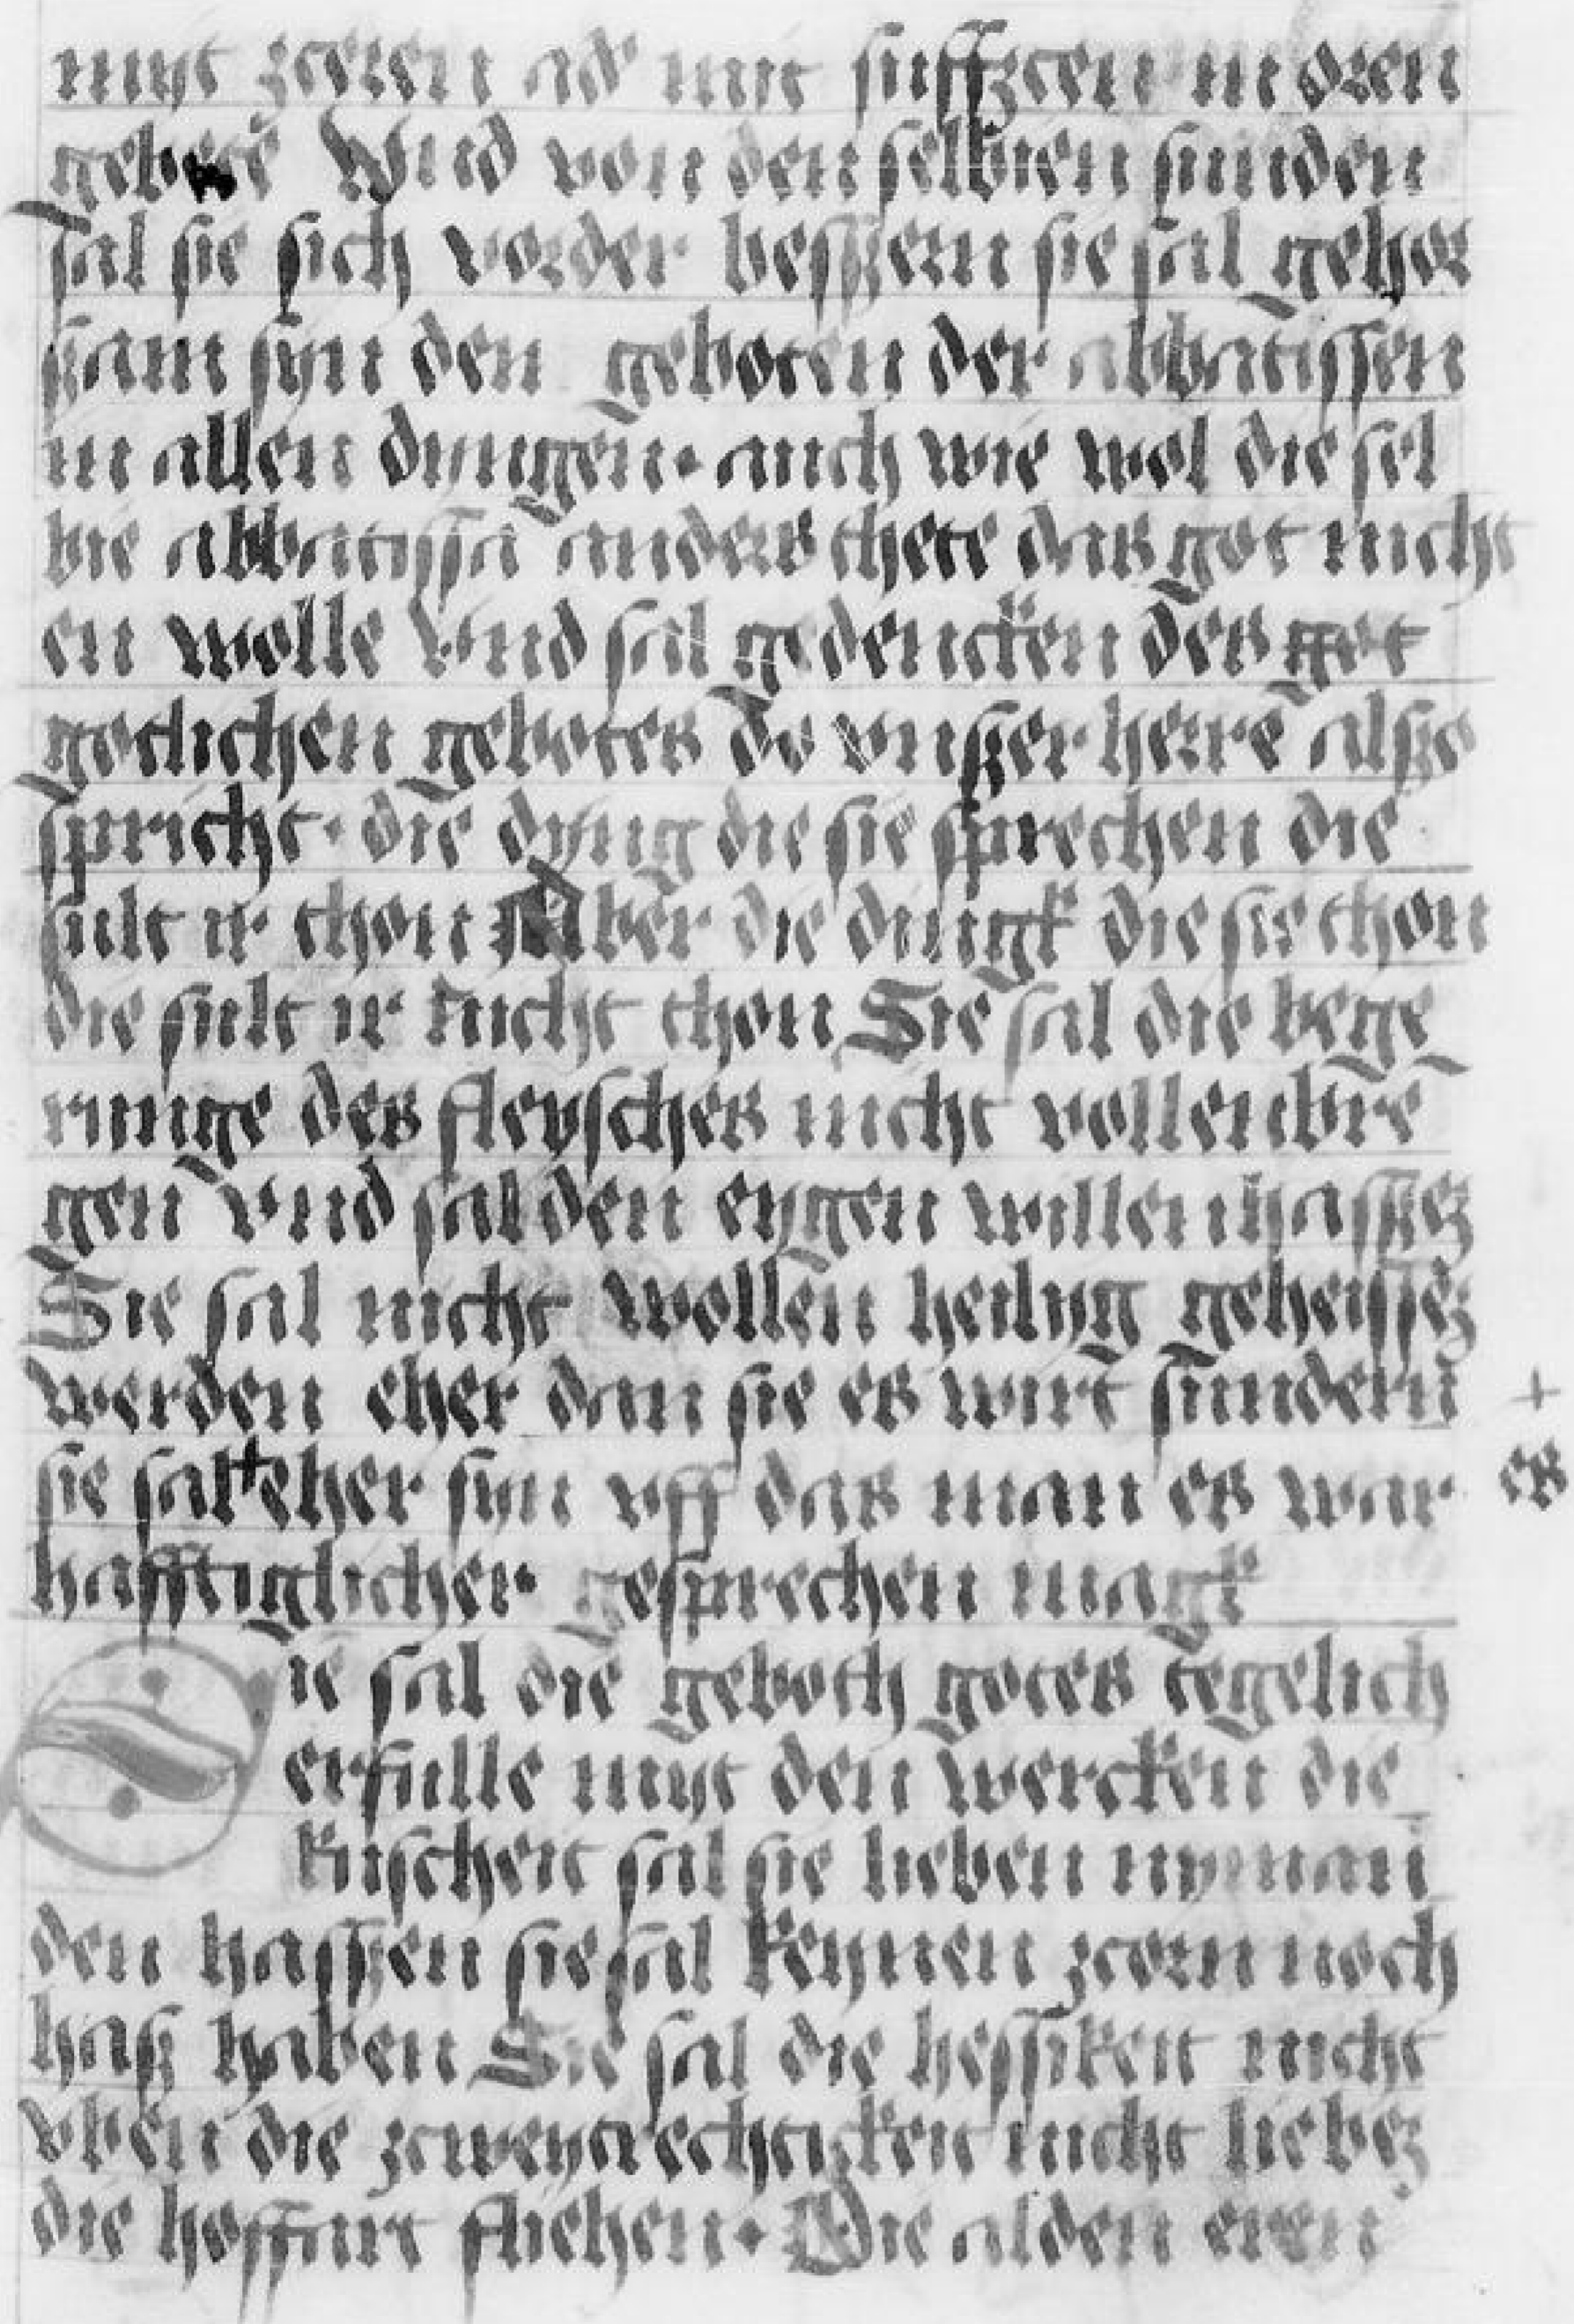 myt zceren ad' mit suffzcen in oren
gebete Vnd von den selbien sunden
sal sie sich vorder beszern sie sal gehor
szam syn den geboten der abbatissen
in allen dyngen · auch wie wol die sel
bie abbatissa anders thete das got nicht
en wolle vnd sal gedencken des
gotlichen gebotes do vnszer herre alszo
spricht · die dyng die sie sprechen die
sult ir thon Aber die dingk die sie thon
die sult ir nicht thon Sie sal die bege
runge des fleysches nicht vollenbre
gen vnd sal den eygen willen haszez
Sie sal nicht wollen heilyg geheissez
werden eher dan sie es wirt sundern
sie sal + eher syn vff das man es war + es
hafftiglicher gesprechen magk
Sie sal die geboth gotes tegelich
erfulle myt den wercken die
kuscheit sal sie lieben nyman
den haszen sie sal keynen zcorn noch
hasz haben Sie sal die hessikeit nicht
vben die zcweytrechtikeit nicht liebez
die hoffart fliehen · Die alden eren